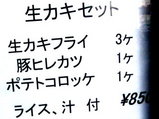 生カキセット
生カキフライ 3ヶ
豚ヒレカツ 1ヶ
ポテトコロッケ 1ヶ
ライス、汁 付 ¥850